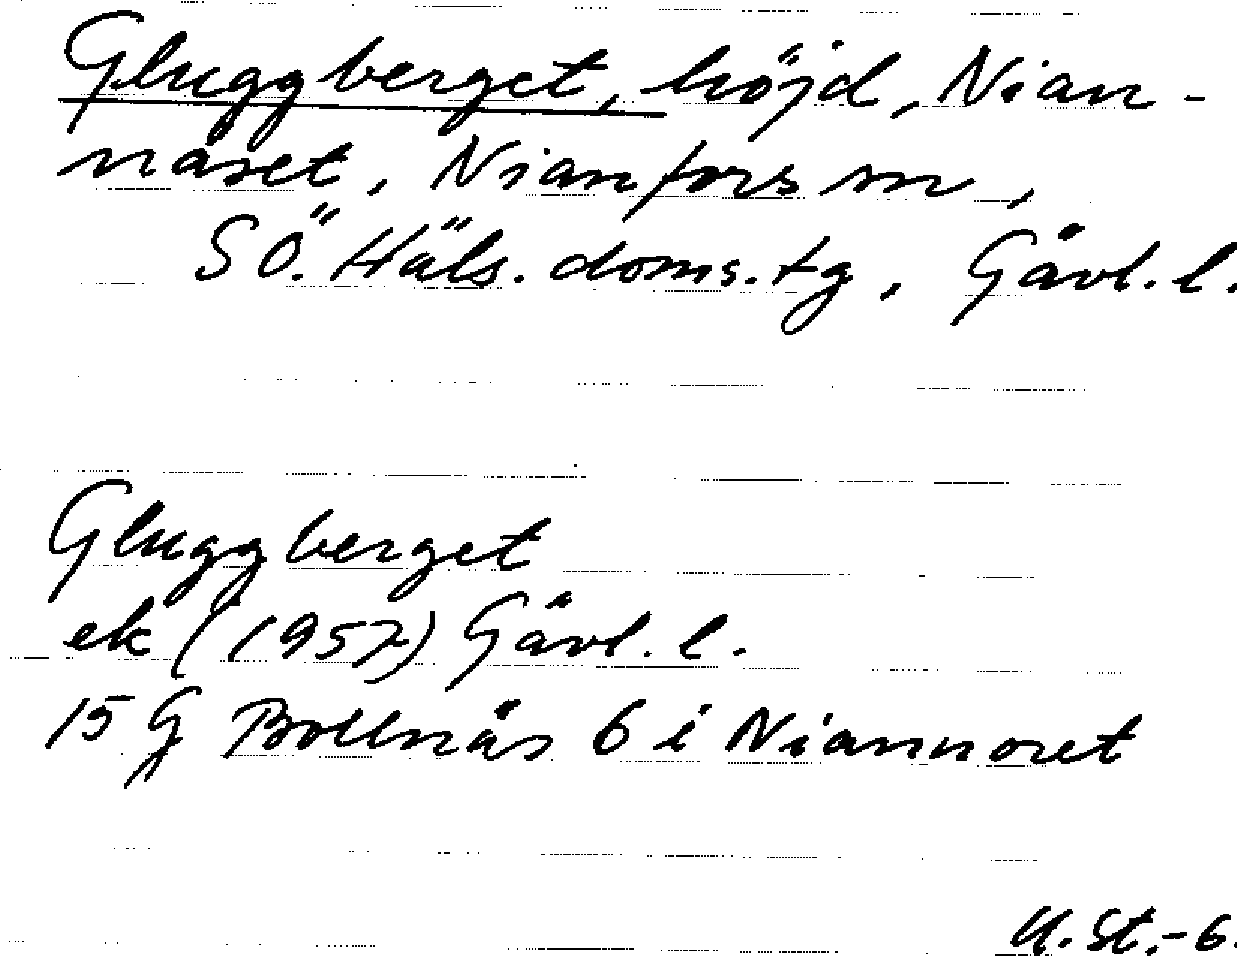 Gluggberget, höjd, Nian-
naset, Nianfors sn,
SÖ. Häls. doms. tg, Gävl. l.
Gluggberget
ek (1957) Gävl. l.
15 G Bollnäs 6 i Niannoret
U. St.-6.